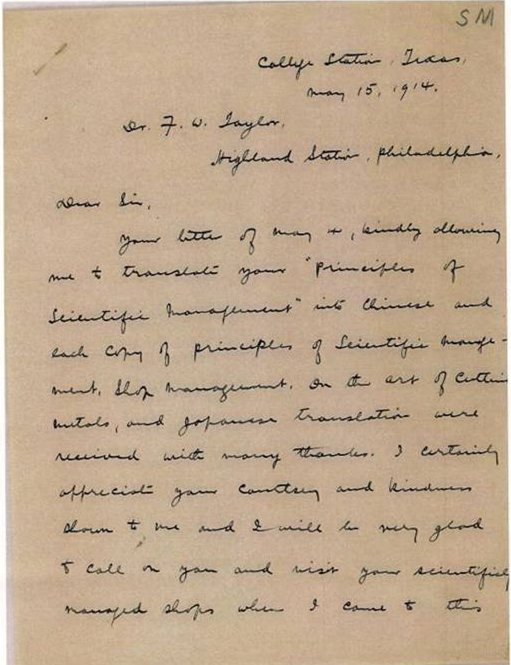 SM
College Station, Texas,
May 15, 1914.
Dr. F. W. Taylor,
Highland Station, Philadelphia,
Dear Sir,
Your letter of May 4, kindly allowing
me to translate your "Principles of
Scientific Management" into Chinese and
each copy of Principles of Scientific Manage-
ment, Shop Management, On the Art of Cutting
metals, and Japanese translation were
received with many thanks. I certainly
appreciate your courtsey and kindness
shown to me and I will be very glad
to call on you and visit your scientificly
managed shops when I come to this